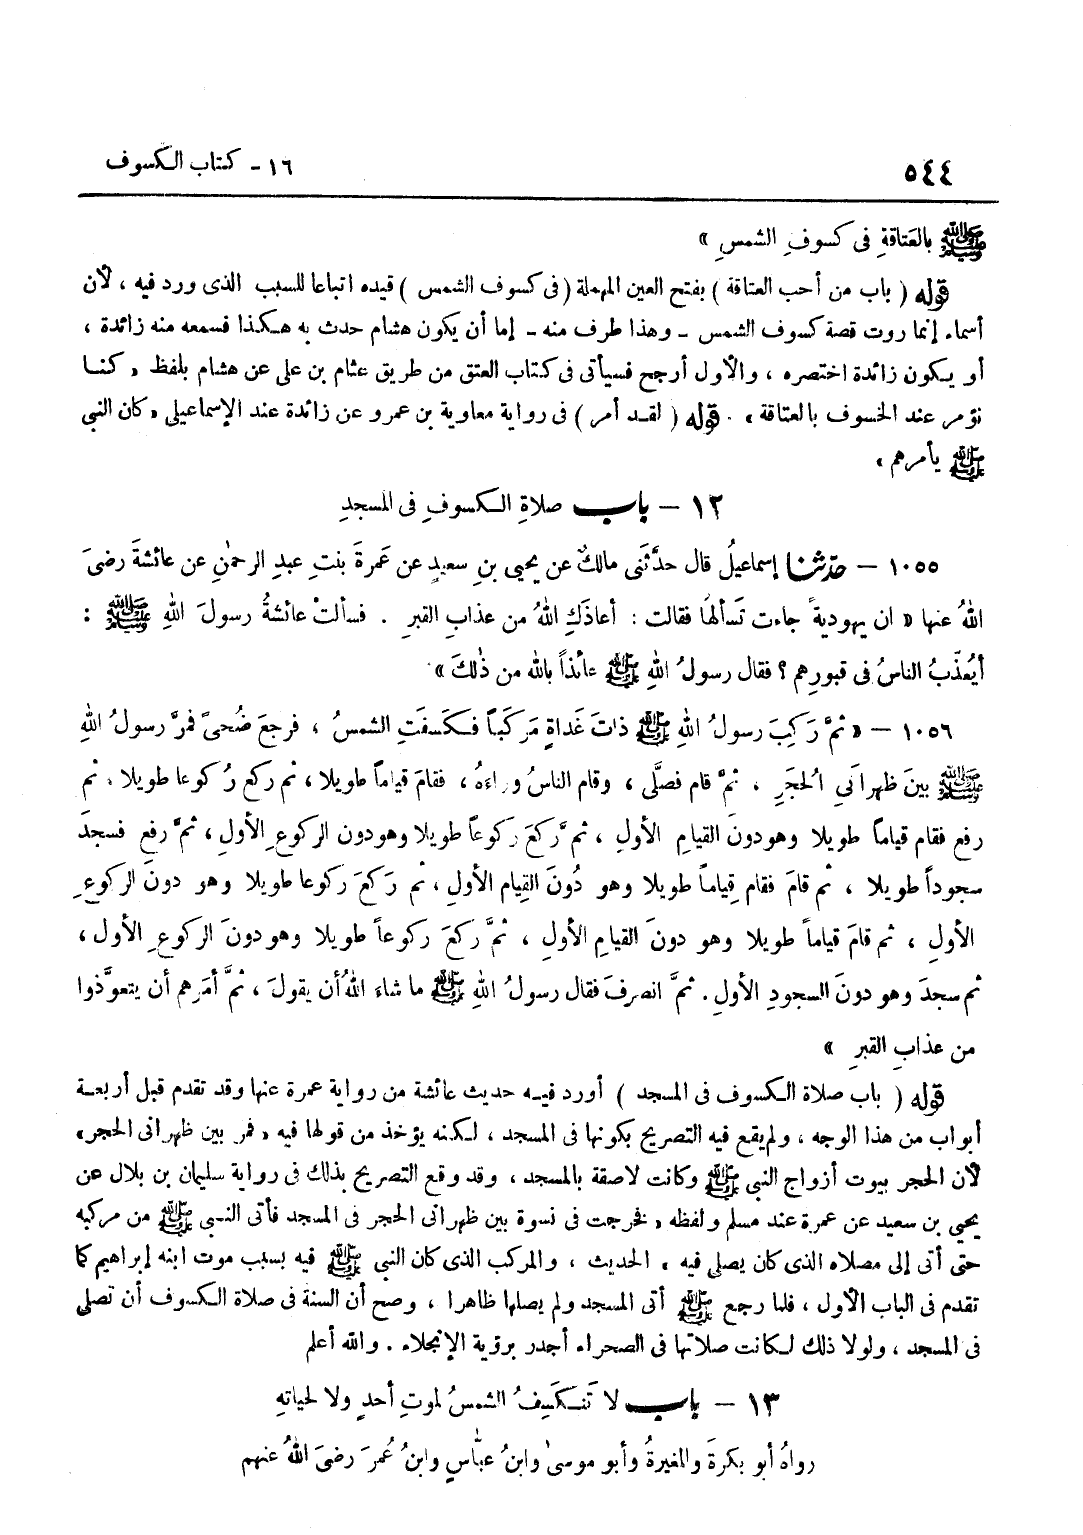 ٥٤٤
١٦ - كتاب الكسوف
ﷺ بالعتاقةِ فى كسوفِ الشمسِ »
قوله ( باب من أحب العتاقة ) بفتح العين المهملة ( فى كسوف الشمس ) قيده اتباعا للسبب الذى ورد فيه ، لأن
أسماء إنما روت قصة كسوف الشمس - وهذا طرف منه - إما أن يكون هشام حدث به هكذا فسمعه منه زائدة ،
أو يكون زائدة اختصره ، والأول أرجح فسيأتى فى كتاب العتق من طريق عثام بن على عن هشام بلفظ « كنا
نؤمر عند الخسوف بالعتاقة » . قوله ( لقد أمر ) فى رواية معاوية بن عمرو عن زائدة عند الإسماعيلى « كان النبى
ﷺ يأمرهم »
١٢ - باب صلاةِ الكسوفِ فى المسجدِ
١٠٥٥ - حدّثنا إسماعيلُ قال حدَّثنى مالكٌ عن يحيى بنِ سعيدٍ عن عَمرةَ بنتِ عبدِ الرحمٰنِ عن عائشةَ رضىَ
اللهُ عنها « ان يهوديةً جاءت تَسألهُا فقالت : أعاذَكِ اللهُ من عذابِ القبرِ . فسألتْ عائشةُ رسولَ اللهِ ﷺ :
أيُعَذّبُ الناسُ فى قبورِهم ؟ فقال رسولُ اللهِ ﷺ عائذاً بالله من ذٰلكَ »
١٠٥٦ - « ثمَّ رَكِبَ رسولُ اللهِ ﷺ ذاتَ غَداةٍ مَركَباً فكسَفَتِ الشمسُ ، فرجعَ ضُحىً فمرَّ رسولُ اللهِ
ﷺ بينَ ظهرانَىِ الحُجَرِ ، ثمَّ قام فصلَّى ، وقام الناسُ وراءَهُ ، فقامَ قياماً طويلا ، ثم ركع رُكوعا طويلا . ثم
رفع فقام قياماً طويلا وهو دونَ القيامِ الأولِ ، ثم ّركعَ ركوعاً طويلا وهو دون الركوعِ الأولِ ، ثمَّ رفع فسجدَ
سجوداً طويلا ، ثم قامَ فقام قِياماً طويلا وهو دُونَ القِيام الأولِ ، ثم رَكعَ ركوعا طويلا وهو دونَ الركوعِ
الأولِ ، ثم قامَ قياماً طويلا وهو دونَ القيامِ الأولِ ، ثمَّ ركعَ ركوعاً طويلا وهو دونَ الركوعِ الأول ،
ثم سجدَ وهو دونَ السجودِ الأولِ . ثمَّ انصرفَ فقال رسولُ اللهِ ﷺ ما شاءَ اللهُ أن يقولَ ، ثمَّ أمَرهم أن يتعوَّذوا
من عذابِ القبرِ »
قوله ( باب صلاة الكسوف فى المسجد ) أورد فيه حديث عائشة من رواية عمرة عنها وقد تقدم قبل أربعة
أبواب من هذا الوجه ، ولم يقع فيه التصريح بكونها فى المسجد ، لكنه يؤخذ من قولها فيه « فمر بين ظهرانى الحجر»
لأن الحجر بيوت أزواج النبى ﷺ وكانت لاصقة بالمسجد ، وقد وقع التصريح بذلك فى رواية سليمان بن بلال عن
يحيى بن سعيد عن عمرة عند مسلم ولفظه « فخرجت فى نسوة بين ظهرانى الحجر فى المسجد فأتى النبى ﷺ من مركبه
حتى أتى إلى مصلاه الذى كان يصلى فيه » الحديث ، والمركب الذى كان النبى ﷺ فيه بسبب موت ابنه إبراهيم كما
تقدم فى الباب الأول ، فلما رجع ﷺ أتى المسجد ولم يصلها ظاهرا ، وصح أن السنة فى صلاة الكسوف أن تصلى
فى المسجد ، ولولا ذلك لكانت صلاتها فى الصحراء أجدر برؤية الإنجلاء . والله أعلم
١٣ - باب لا تَنكسِفُ الشمسُ لموتِ أحدٍ ولا لحياتهِ
رواهُ أبو بكرةَ والمغيرةُ وأبو موسىٰ وابنُ عبَّاسٍ وابنُ عُمرَ رضىَ اللهُ عنهم